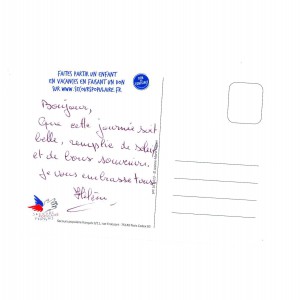 FAITES PARTIR UN ENFANT
EN VACANCES EN FAISANT UN DON
SUR WWW.SECOURSPOPULAIRE.FR
Bonjour,
Que cette journée soit
belle, remplie de soleil
et de bons souvenirs.
Je vous embrasse tous.
Hélène
SECOURS
POPULAIRE
FRANÇAIS